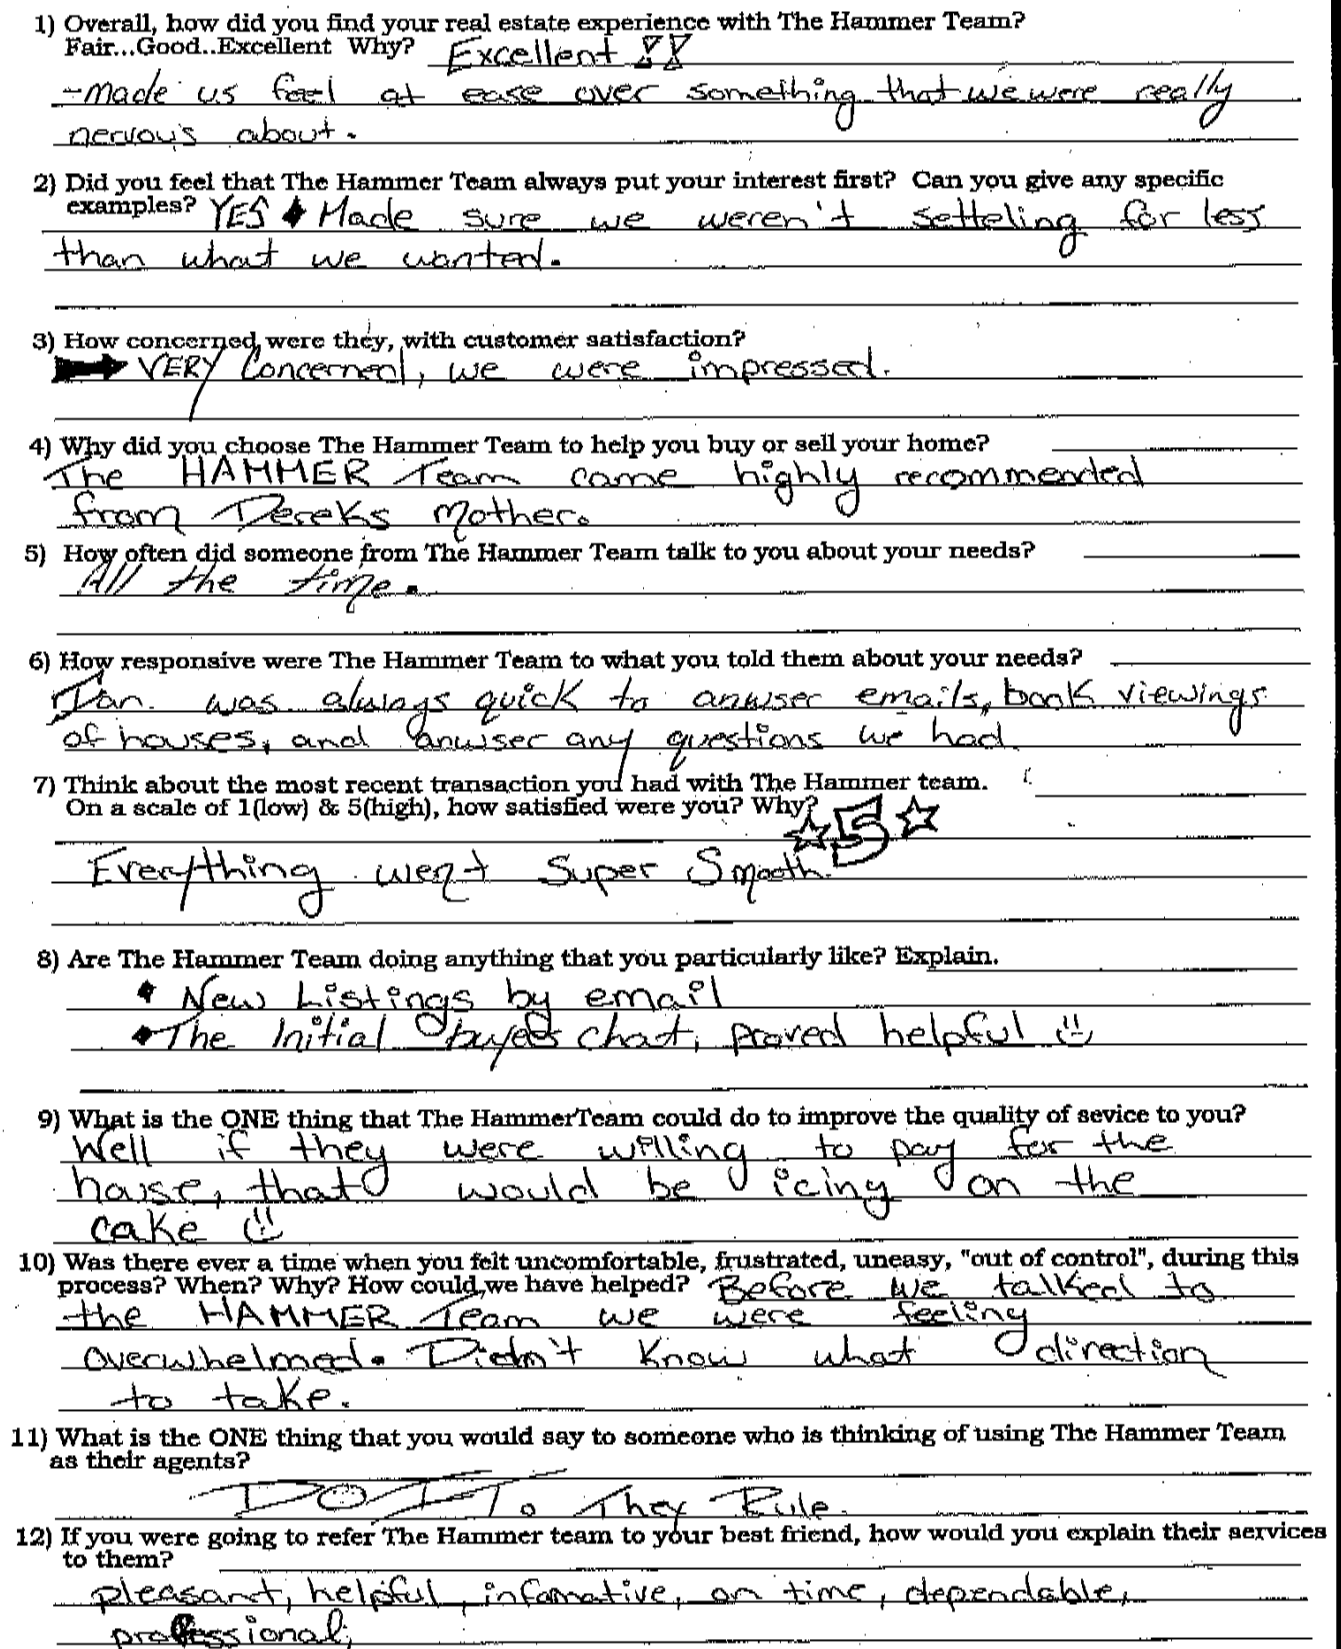 1) Overall, how did you find your real estate experience with The Hammer Team?
Fair...Good..Excellent Why? Excellent !!
-made us feel at ease over something that we were really
nervous about.
2) Did you feel that The Hammer Team always put your interest first? Can you give any specific
examples? YES Made sure we weren't setteling for less
than what we wanted.
3) How concerned were they, with customer satisfaction?
VERY Concerned, we were impressed.
4) Why did you choose The Hammer Team to help you buy or sell your home?
The HAMMER Team came highly recommended
from Dereks Mother.
5) How often did someone from The Hammer Team talk to you about your needs?
All the time.
6) How responsive were The Hammer Team to what you told them about your needs?
was always quick to anwser emails, book viewings
of houses, and anwser any questions we had
7) Think about the most recent transaction you had with The Hammer team.
On a scale of 1(low) & 5(high), how satisfied were you? Why? ☆5☆
Everything went Super Smooth.
8) Are The Hammer Team doing anything that you particularly like? Explain.
New Listings by email
The Initial buyers chat, proved helpful
9) What is the ONE thing that The HammerTeam could do to improve the quality of sevice to you?
Well if they were willing to pay for the
house, that would be icing on the
cake
10) Was there ever a time when you felt uncomfortable, frustrated, uneasy, "out of control", during this
process? When? Why? How could we have helped? Before we talked to
the HAMMER Team we were feeling
overwhelmed. Didn't know what direction
to take.
11) What is the ONE thing that you would say to someone who is thinking of using The Hammer Team
as their agents?
DO IT. They Rule.
12) If you were going to refer The Hammer team to your best friend, how would you explain their services
to them?
pleasant, helpful, infomative, on time, dependable,
professional,